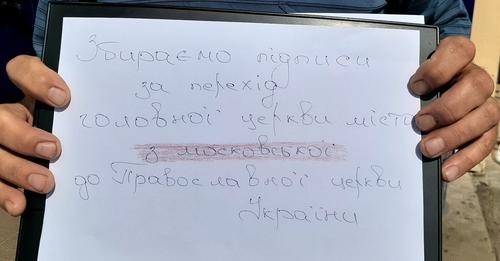 Збираємо підписи
за перехід
головної церкви міста
з московської
до Православної церкви
України